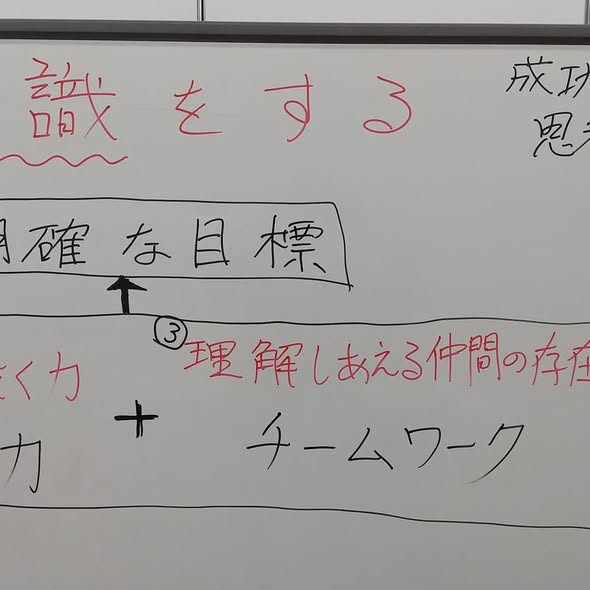 識をする
成功
思
明確な目標
③理解しあえる仲間の存在
く力
力 + チームワーク